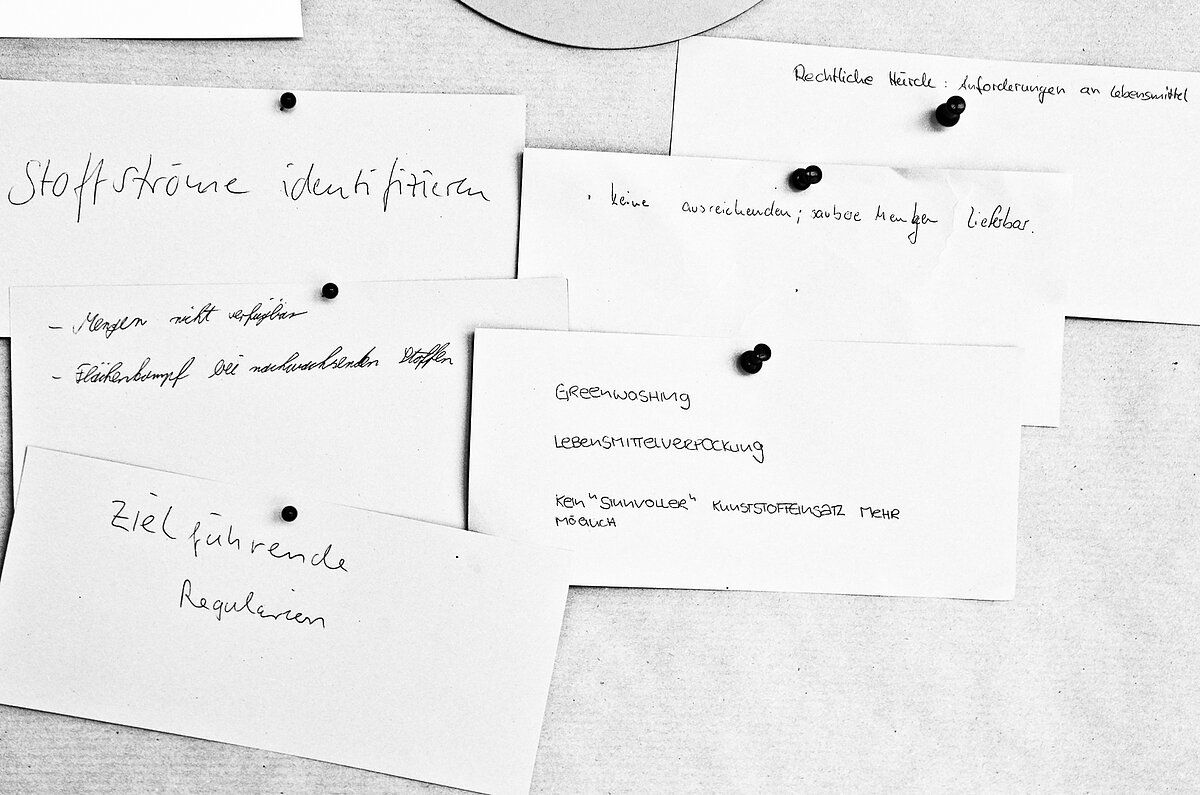 Stoffströme identifizieren
- Mengen nicht verfügbar
- Flächenkampf bei nachwachsenden Stoffen
Zielführende
Regularien
Rechtliche Hürde: Anforderungen an Lebensmittel
· keine ausreichenden, saubere Mengen lieferbar.
GREENWASHING
LEBENSMITTELVERPACKUNG
KEIN "SINNVOLLER" KUNSTSTOFFEINSATZ MEHR
MÖGLICH